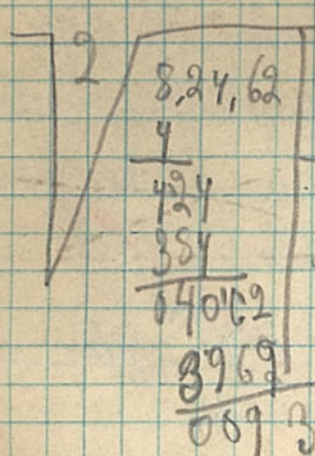 2 8,24,62
4
424
384
04062
3969
009 3